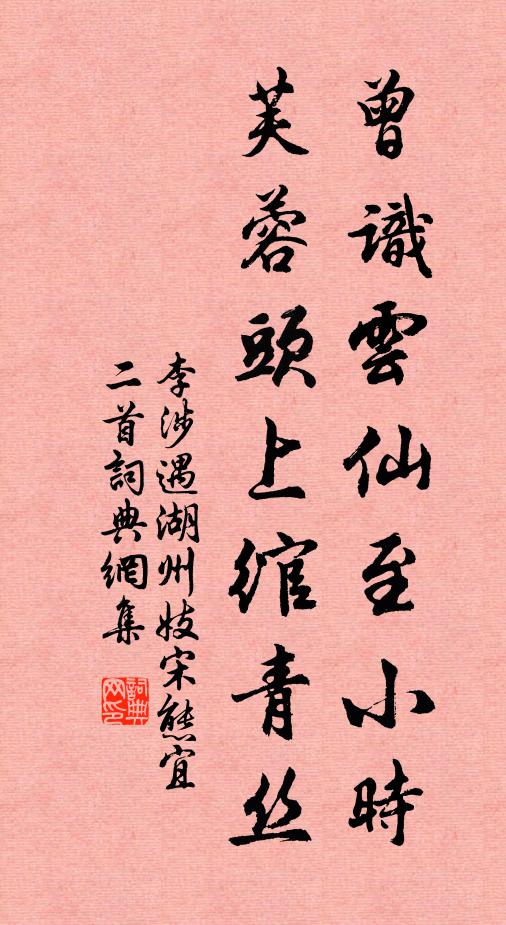 曾識雲仙至小時
芙蓉頭上綰青丝
李涉遇湖州妓宋態宜
二首詞典網集
詞典
网印